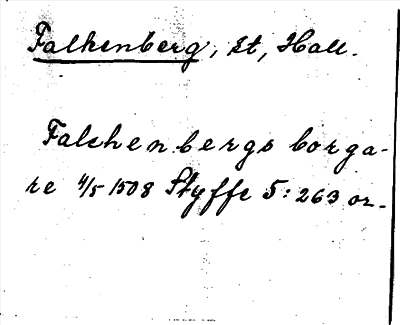 Falkenberg, St, Hall.
Falchenbergs borga-
re 4/5 1508 Styffe 5:263 or.